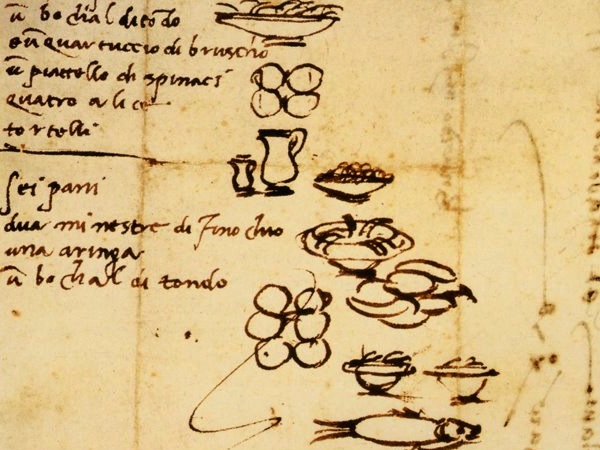 ū bochal di tōdo
e ū quartuccio di bruscho
ū piattello di spinaci
quatro alice
tortelli
sei pani
dua minestre di finochio
una aringa
ū bochal di tondo